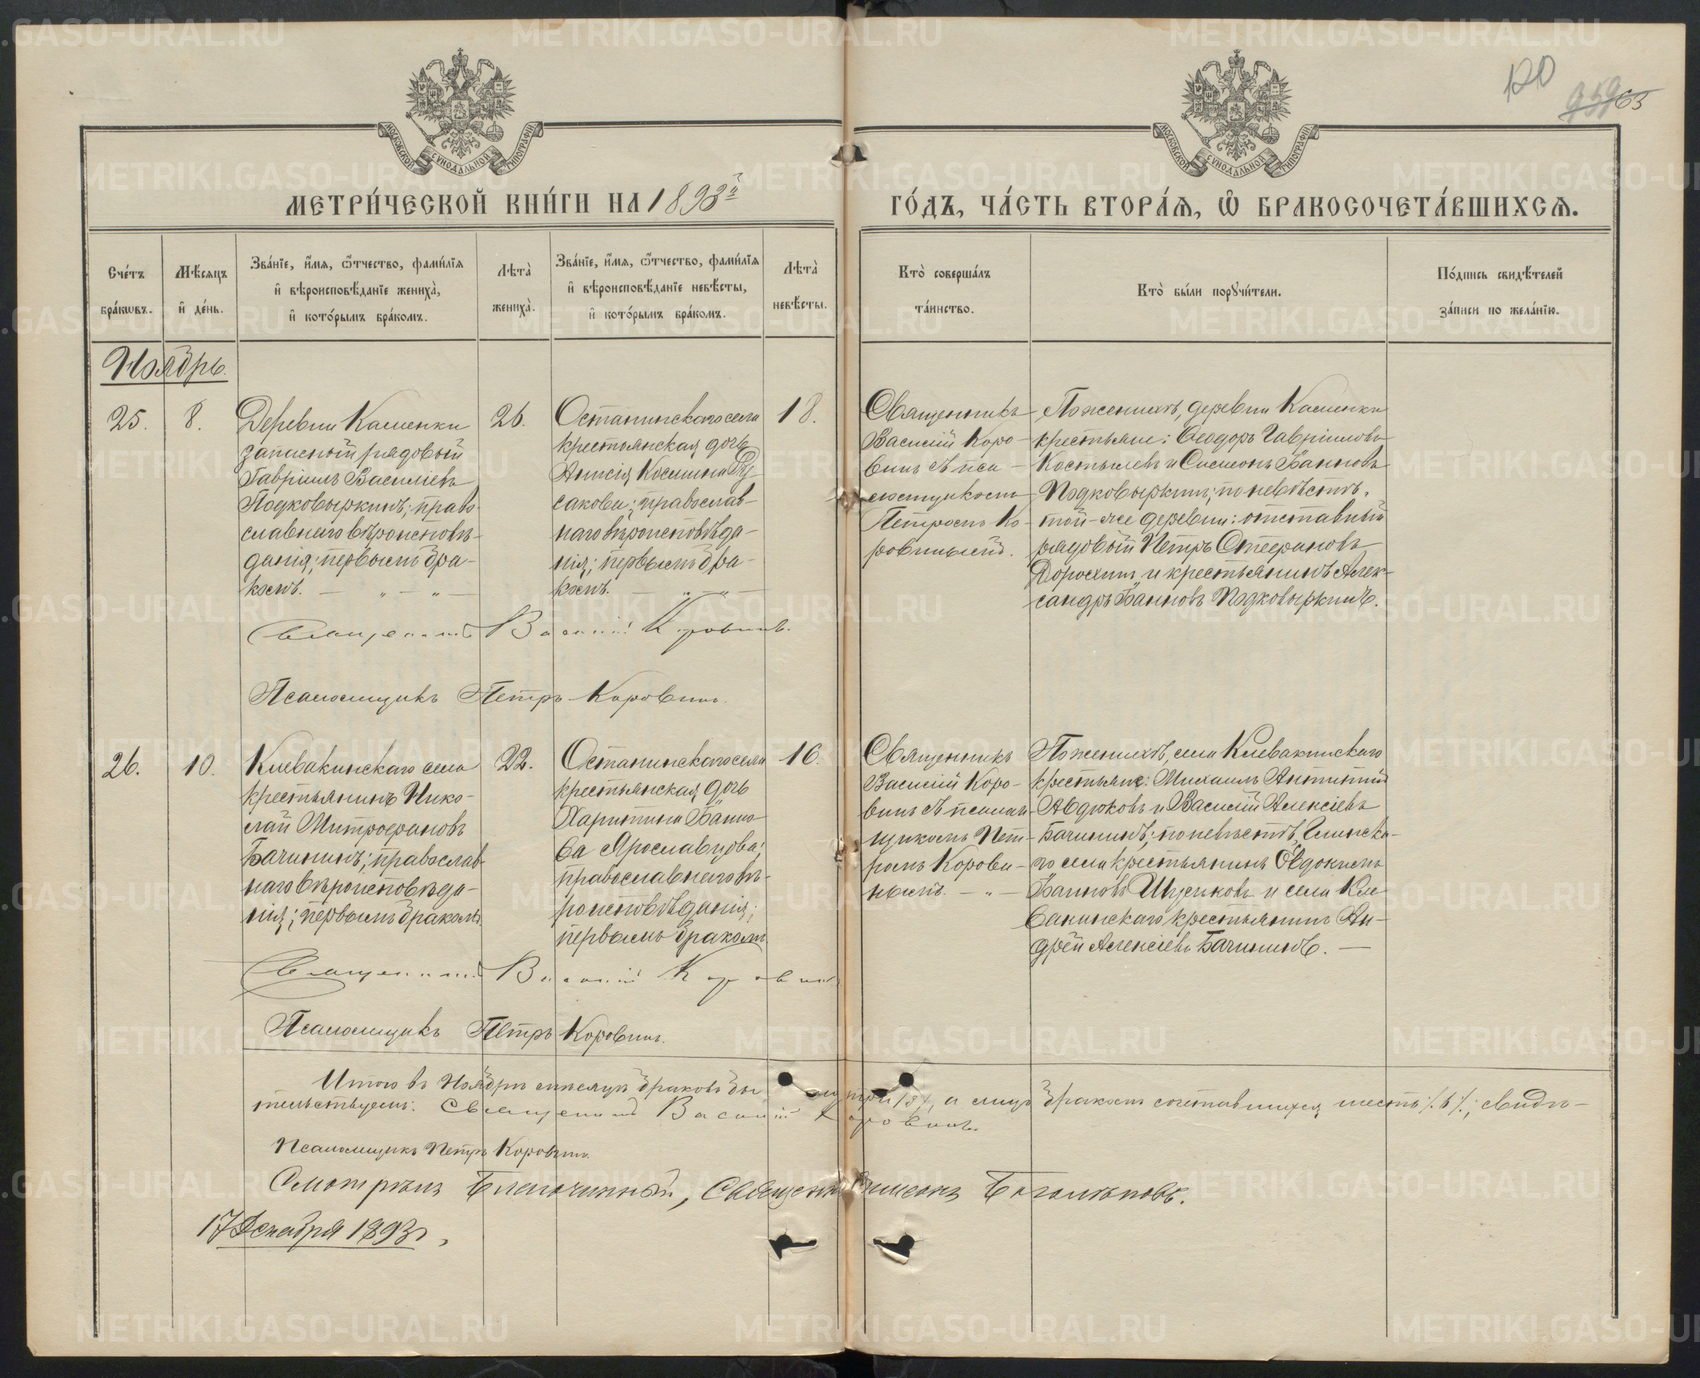 120
959 63
МОСКОВСКОЙ СѴНОДАЛЬНОЙ ТИПОГРАФІИ
МОСКОВСКОЙ СѴНОДАЛЬНОЙ ТИПОГРАФІИ
МЕТРИ́ЧЕСКОЙ КНИ́ГИ НА 1893й ГО́ДЪ, ЧА́СТЬ ВТОРА́Я, Ѡ҆ БРАКОСОЧЕТА́ВШИХСЯ.
Сче́тъ бра́кѡвъ.
Мѣ́сяцъ и҆ де́нь.
Зва́нїе, и҆́мя, ѻ҆́тчество, фами́лїя и҆ вѣроисповѣ́данїе жениха̀, и҆ кото́рымъ бра́комъ.
Лѣта̀ жениха̀.
Зва́нїе, и҆́мя, ѻ҆́тчество, фами́лїя и҆ вѣроисповѣ́данїе невѣ́сты, и҆ кото́рымъ бра́комъ.
Лѣта̀ невѣ́сты.
Кто̀ соверша́лъ та́инство.
Кто̀ бы́ли поручи́тели.
По́дпись свидѣ́телей за́писи по жела́нїю.
Ноябрь.
25.
8.
Деревни Каменки
запасной рядовой
Гавріилъ Василіевъ
Подковыркинъ; право-
славнаго вѣроисповѣ-
данія; первымъ бра-
комъ.
26.
Останинскаго села
крестьянская дочь
Анисія Космина Ру-
сакова; православ-
наго вѣроисповѣда-
нія; первымъ бра-
комъ.
18.
Священникъ
Василій Коро-
винъ съ пса-
ломщикомъ
Петромъ Ко-
ровинымъ.
По женихѣ, деревни Каменки
крестьяне: Ѳеодоръ Гавріиловъ
Костылевъ и Симеонъ Іоанновъ
Подковыркинъ; по невѣстѣ,
той-же деревни: отставный
рядовой Петръ Стефановъ
Дорохинъ и крестьянинъ Алек-
сандръ Іоанновъ Подковыркинъ.
Священникъ Василій Коровинъ.
Псаломщикъ Петръ Коровинъ.
26.
10.
Клевакинскаго села
крестьянинъ Нико-
лай Митрофановъ
Бачининъ; православ-
наго вѣроисповѣда-
нія; первымъ бракомъ.
22.
Останинскаго села
крестьянская дочь
Харитина Іоанно-
ва Ярославцова;
православнаго вѣ-
роисповѣданія;
первымъ бракомъ
16.
Священникъ
Василій Коро-
винъ съ псалом-
щикомъ Пет-
ромъ Корови-
нымъ.
По женихѣ, села Клевакинскаго
крестьяне: Михаилъ Антипинъ
Авдюковъ и Василій Алексіевъ
Бачининъ; по невѣстѣ, Глинска-
го села крестьянинъ Евдокимъ
Іоанновъ и села Кле-
вакинскаго крестьянинъ Ан-
дрей Алексіевъ Бачининъ.
Священникъ Василій Коровинъ
Псаломщикъ Петръ Коровинъ.
Итого въ Ноябрѣ мѣсяцѣ браковъ бы- ло три /3/, а лицъ бракомъ сочетавшихся шесть /6/; свидѣ-
тельствуемъ: Священникъ Василій Коровинъ.
Псаломщикъ Петръ Коровинъ.
Смотрѣлъ Благочинный, Священникъ Симеонъ Боголѣповъ.
17 Декабря 1893 г.